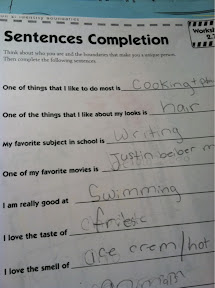 Sentences Completion
Worksh
2.
Think about who you are and the foundation that make you a unique person.
Then complete the following sentences.
One of things that I like to do most is Cooking +
One of the things that I like about my looks is hair
My favorite subject in school is Writing
One of my favorite movies is Justin beiber m
I am really good at Swimming
I love the taste of
I love the smell of /hot